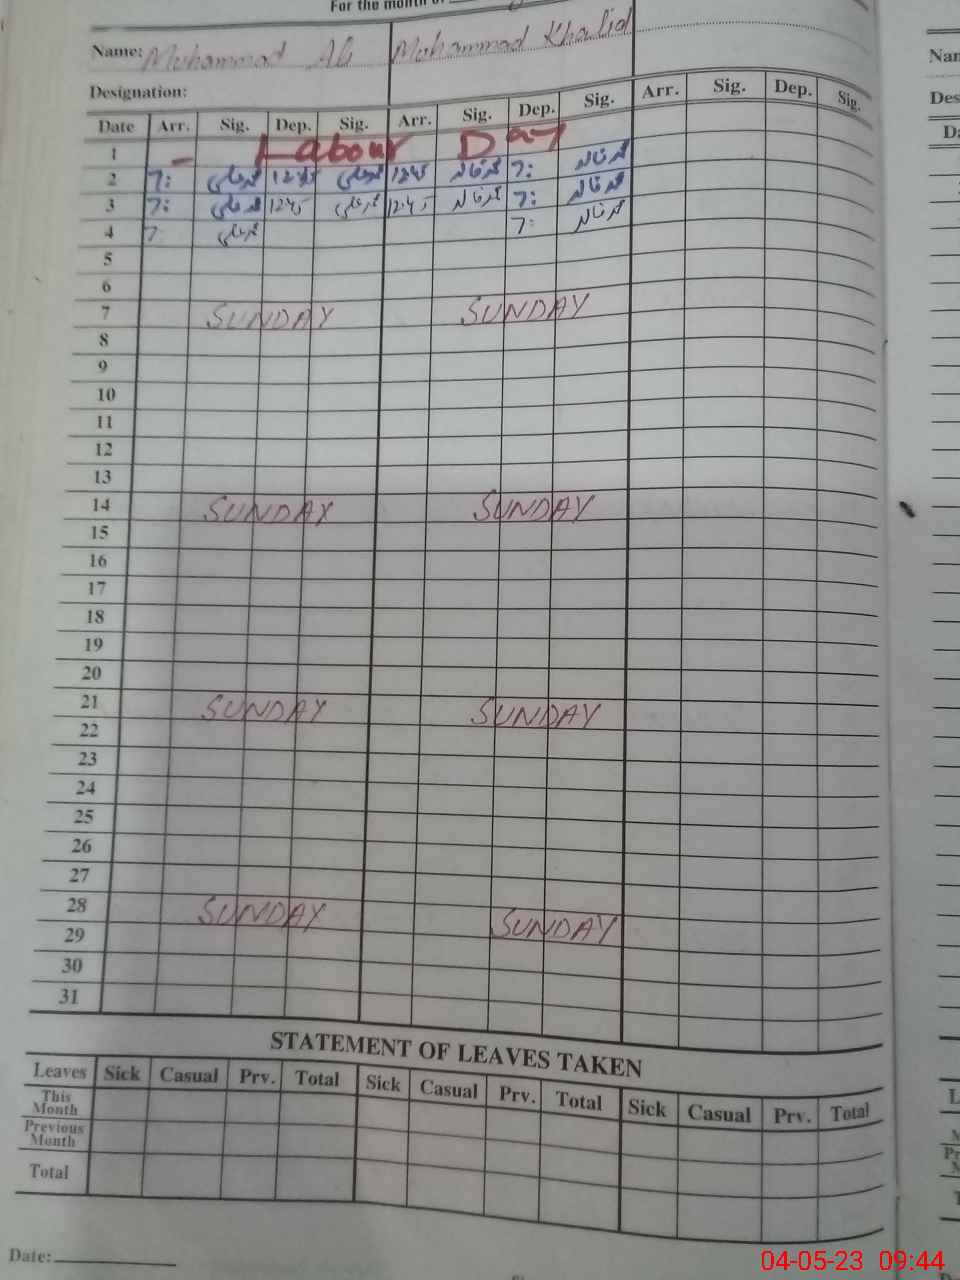 For the month of
Name: Muhammad Ali Muhammad Khalid
Designation:
Date Arr. Sig. Dep. Sig. Arr. Sig. Dep. Sig. Arr. Sig. Dep. Sig.
1 - Labour Day
2 7: محمد علی 1245 محمد علی 1245 محمد خالد 7: محمد خالد
3 7: محمد علی 1245 محمد علی 1245 محمد خالد 7: محمد خالد
4 7: محمد علی 7: محمد خالد
5
6
7 SUNDAY SUNDAY
8
9
10
11
12
13
14 SUNDAY SUNDAY
15
16
17
18
19
20
21 SUNDAY SUNDAY
22
23
24
25
26
27
28 SUNDAY SUNDAY
29
30
31
STATEMENT OF LEAVES TAKEN
Leaves Sick Casual Prv. Total Sick Casual Prv. Total Sick Casual Prv. Total
This Month
Previous Month
Total
Date:
04-05-23 09:44